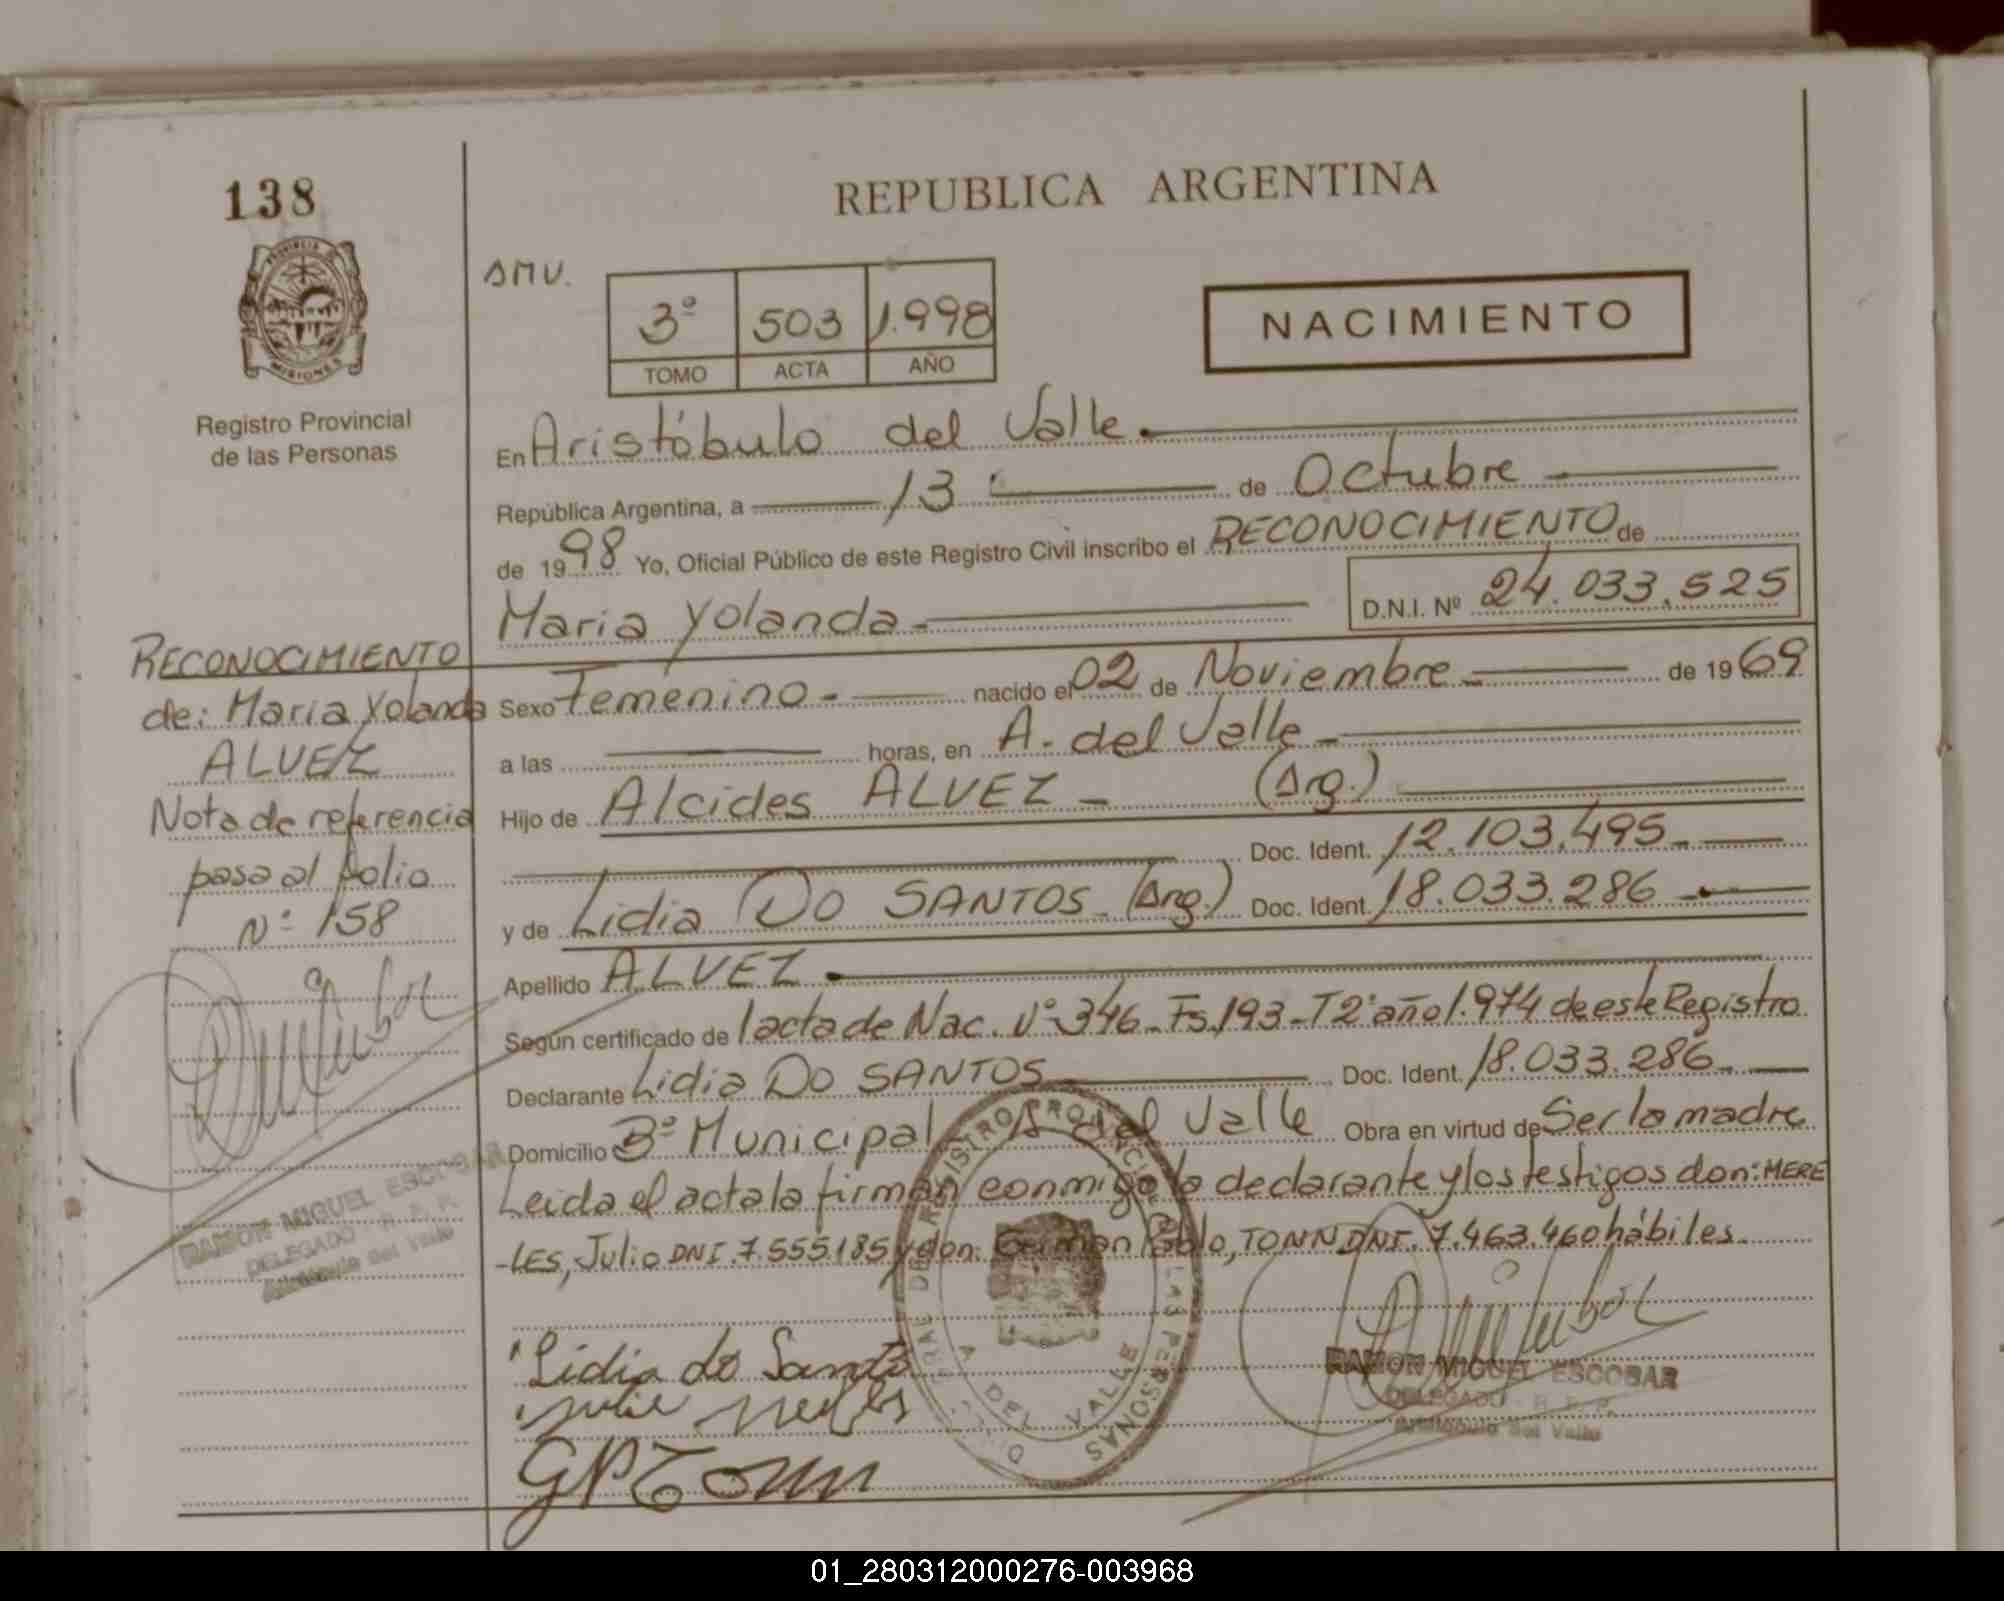 138
REPUBLICA ARGENTINA
PROVINCIA DE
MISIONES
Registro Provincial
de las Personas
AMV.
3º 503 1.998
TOMO ACTA AÑO
NACIMIENTO
En Aristóbulo del Valle.
República Argentina, a 13 de Octubre
de 1998 Yo, Oficial Público de este Registro Civil inscribo el RECONOCIMIENTO de
Maria Yolanda D.N.I. Nº 24.033.525
Sexo Femenino nacido el 02 de Noviembre de 1969
a las horas, en A. del Valle
Hijo de Alcides ALVEZ (Arg.)
Doc. Ident. 12.103.495
y de Lidia DO SANTOS (Arg.) Doc. Ident. 18.033.286
Apellido ALVEZ
Según certificado de /acta de Nac. Nº 346 Fs. 193 - T2º año 1.974 de este Registro
Declarante Lidia DO SANTOS Doc. Ident. 18.033.286
Domicilio Bº Municipal A del Valle Obra en virtud de Ser la madre
Leída el acta la firman conmigo la declarante y los testigos don: MERE
-LES, Julio DNI. 7.555.185 y don: Germán Pablo, TONN DNI. 7.463.460 hábiles.
Lidia do Santo
GPTonn
RAMON MIGUEL ESCOBAR
DELEGADO R. P. P.
Aristóbulo del Valle
A DEL VALLE
RECONOCIMIENTO
de: Maria Yolanda
ALVEZ
Nota de referencia
pasa al folio
Nº 158
RAMON MIGUEL ESCOBAR
DELEGADO R. P. P.
Aristóbulo del Valle
01_280312000276-003968